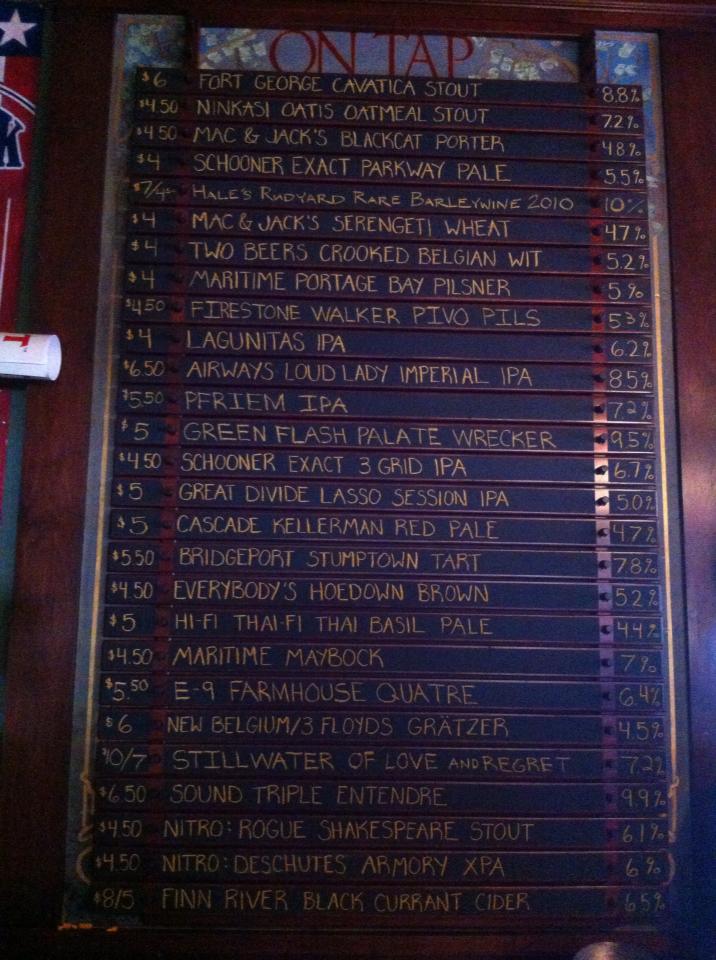 ON TAP
$6 FORT GEORGE CAVATICA STOUT 8.8%
$4.50 NINKASI OATIS OATMEAL STOUT 7.2%
$4.50 MAC & JACK'S BLACKCAT PORTER 4.8%
$4 SCHOONER EXACT PARKWAY PALE 5.5%
$7/4- HALE'S RUDYARD RARE BARLEYWINE 2010 10%
$4 MAC & JACK'S SERENGETI WHEAT 4.7%
$4 TWO BEERS CROOKED BELGIAN WIT 5.2%
$4 MARITIME PORTAGE BAY PILSNER 5%
$4.50 FIRESTONE WALKER PIVO PILS 5.3%
$4 LAGUNITAS IPA 6.2%
$6.50 AIRWAYS LOUD LADY IMPERIAL IPA 8.5%
$5.50 PFRIEM IPA 7.2%
$5 GREEN FLASH PALATE WRECKER 9.5%
$4.50 SCHOONER EXACT 3 GRID IPA 6.7%
$5 GREAT DIVIDE LASSO SESSION IPA 5.0%
$5 CASCADE KELLERMAN RED PALE 4.7%
$5.50 BRIDGEPORT STUMPTOWN TART 7.8%
$4.50 EVERYBODY'S HOEDOWN BROWN 5.2%
$5 HI-FI THAI-FI THAI BASIL PALE 4.4%
$4.50 MARITIME MAYBOCK 7%
$5.50 E-9 FARMHOUSE QUATRE 6.4%
$6 NEW BELGIUM/3 FLOYDS GRÄTZER 4.5%
$10/7 STILLWATER OF LOVE AND REGRET 7.2%
$6.50 SOUND TRIPLE ENTENDRE 9.9%
$4.50 NITRO: ROGUE SHAKESPEARE STOUT 6.1%
$4.50 NITRO: DESCHUTES ARMORY XPA 6%
$8/5 FINN RIVER BLACK CURRANT CIDER 6.5%